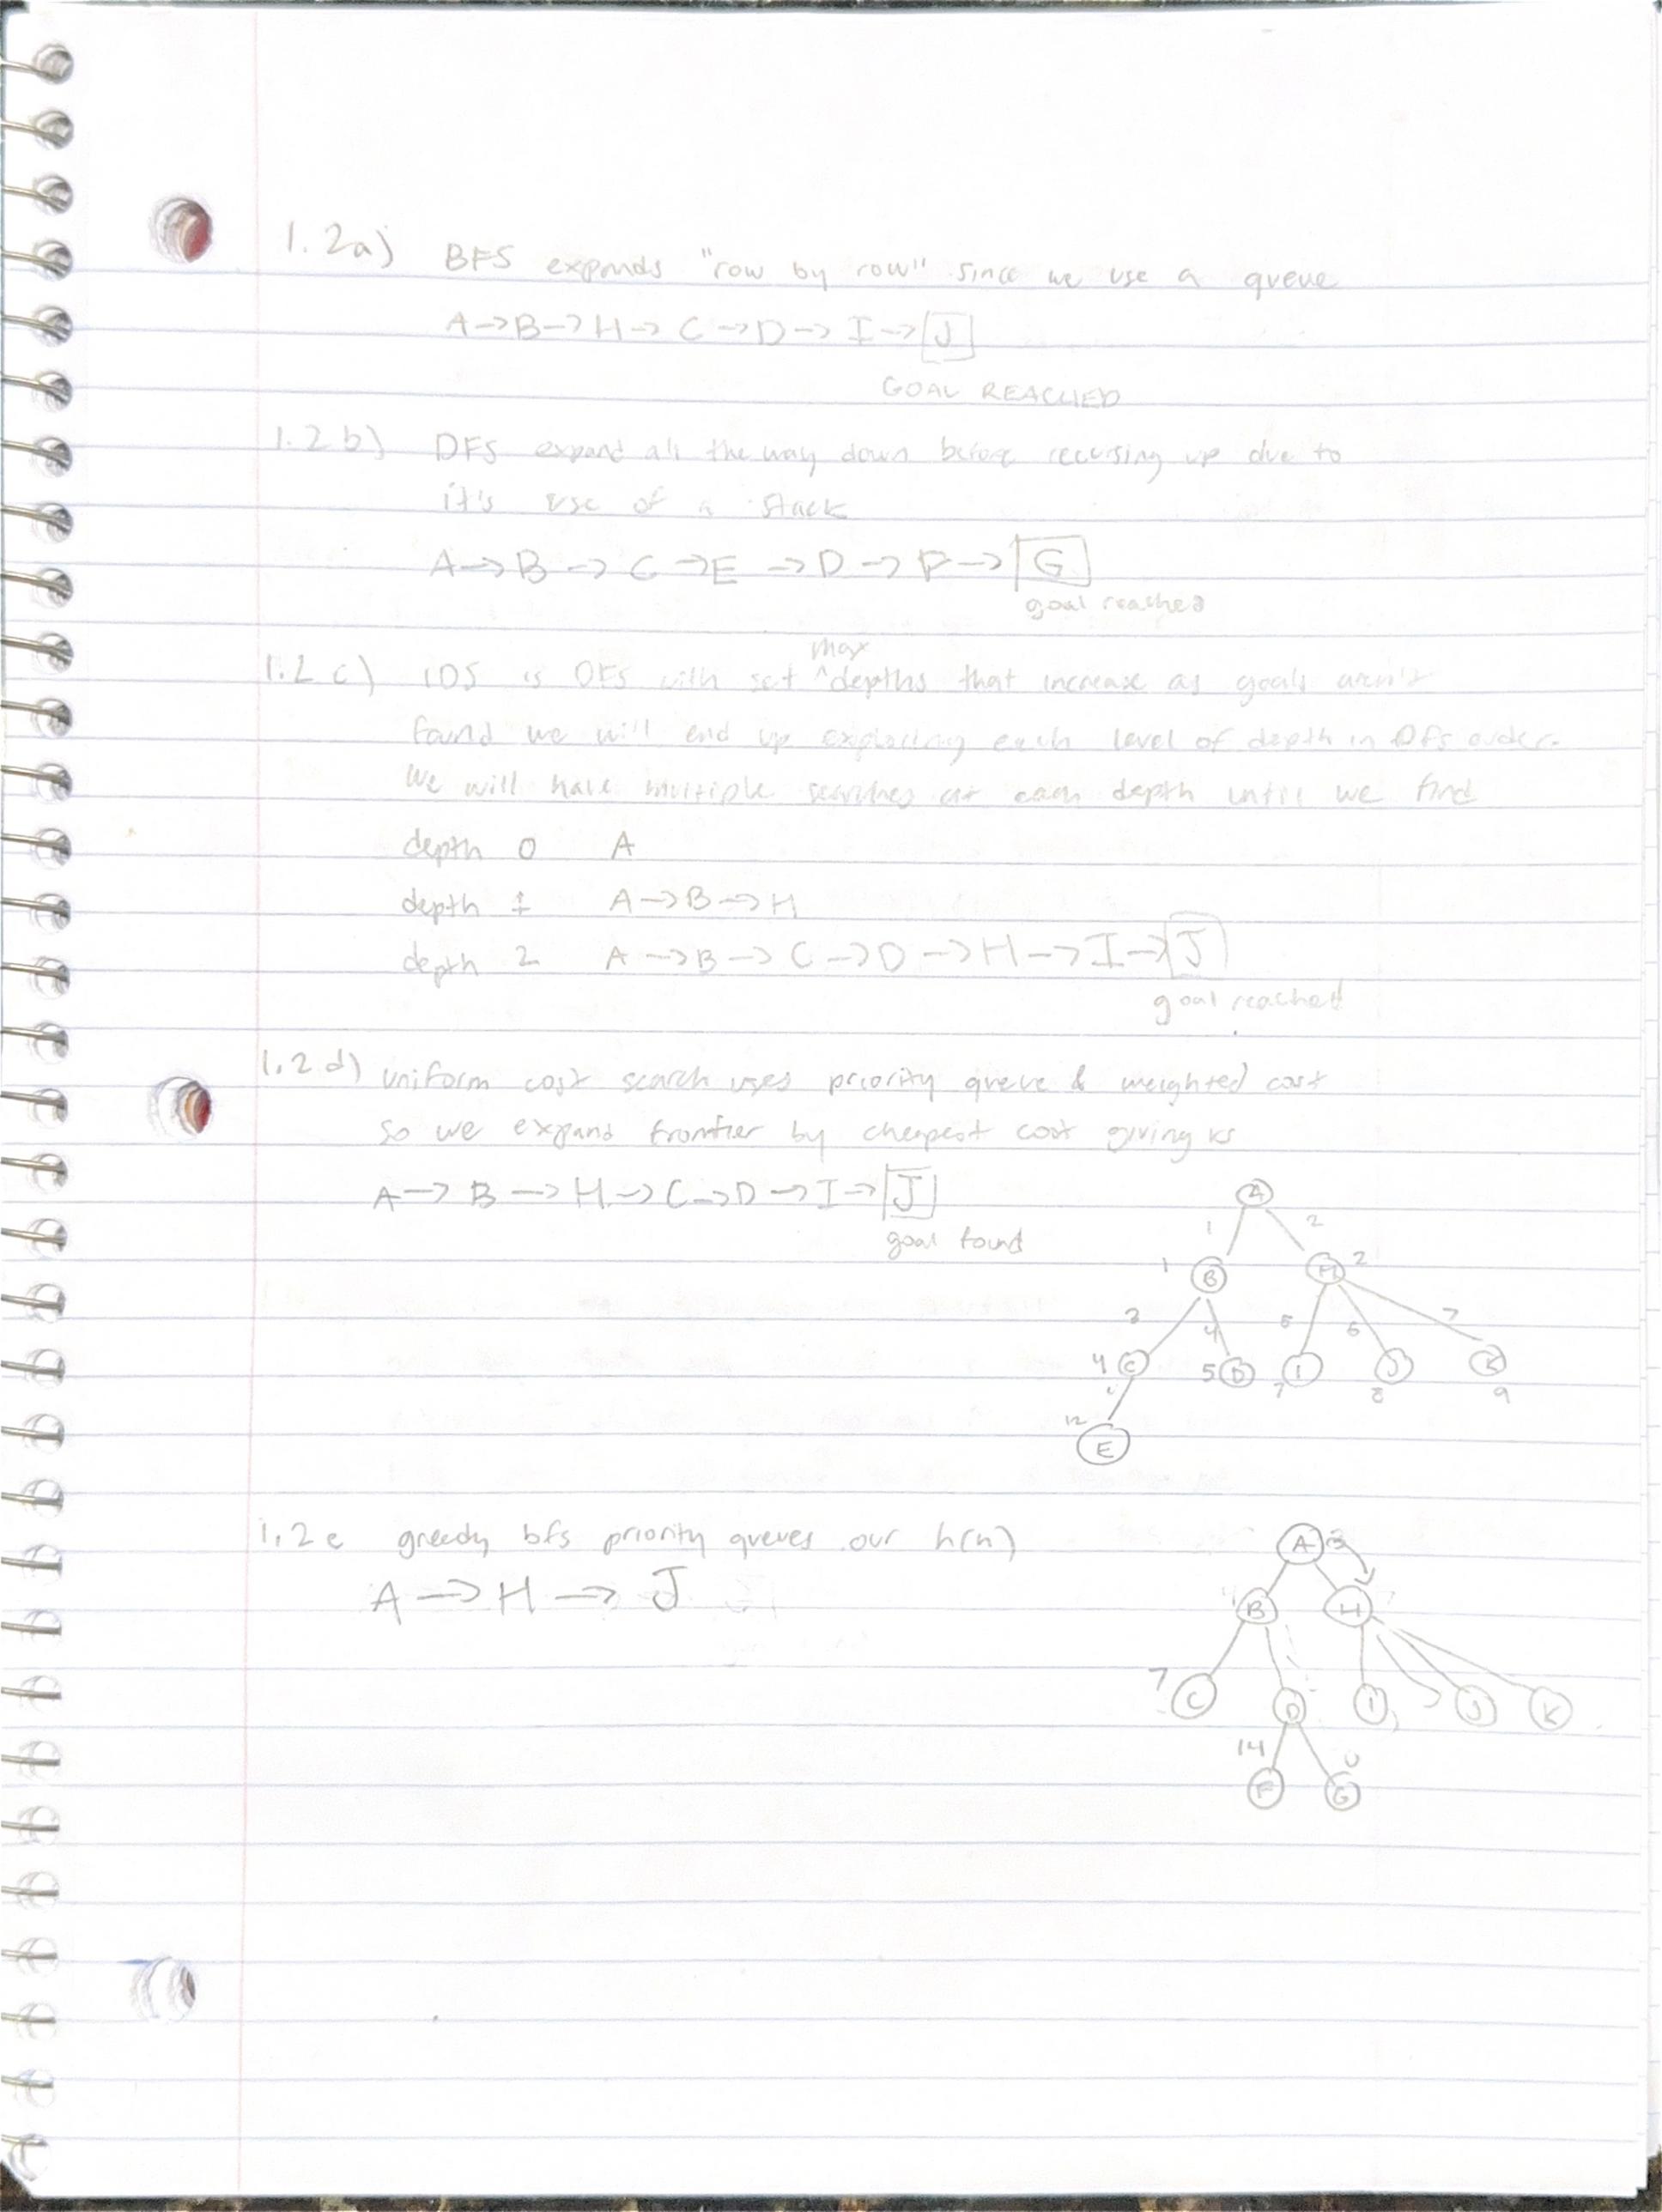 1.2a) BFS expands "row by row" since we use a queue
A->B->H->C->D->I->J
GOAL REACHED
1.2b) DFS expand all the way down before recursing up due to
it's use of a stack
A->B->C->E->D->F->G
goal reached
max
1.2c) IDS is DFS with set ^depths that increase as goals aren't
found we will end up exploring each level of depth in DFS order.
We will have multiple searches at each depth until we find
depth 0 A
depth 1 A->B->H
depth 2 A->B->C->D->H->I->J
goal reached
1.2d) uniform cost search uses priority queue & weighted cost
so we expand frontier by cheapest cost giving us
A->B->H->C->D->I->J
goal found
A
1 2
1 B H 2
3 4 5 6 7
4 C 5 D I J K
7 8 9
12
E
1.2e greedy bfs priority queues our h(n)
A->H->J
A
B H
7 C D I J K
14 0
F G